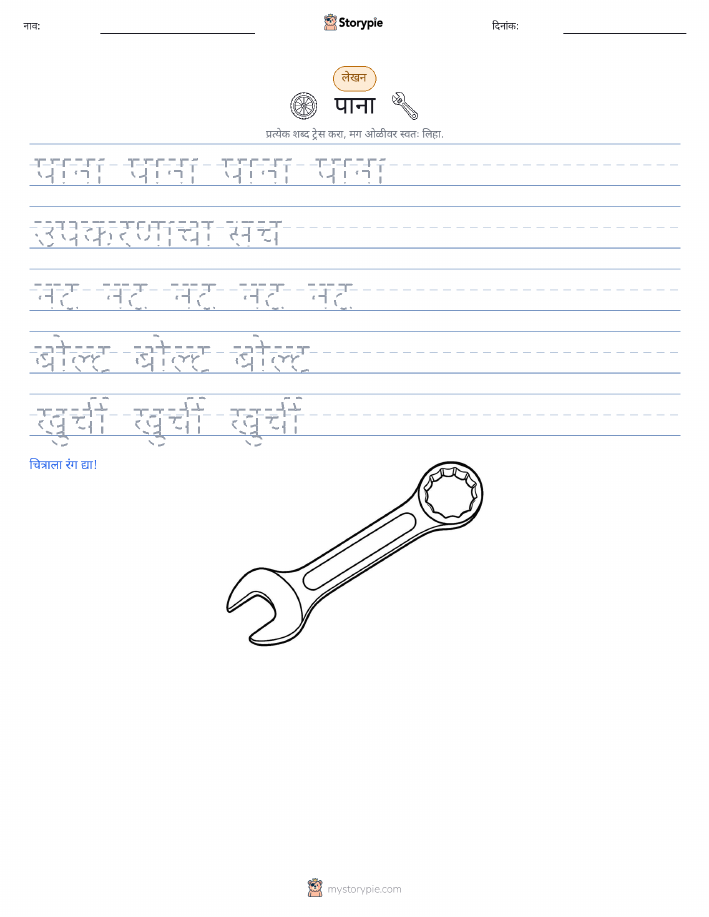 नाव:
Storypie
दिनांक:
लेखन
पाना
प्रत्येक शब्द ट्रेस करा, मग ओळीवर स्वतः लिहा.
पाना पाना पाना पाना
उपकरणाचा संच
नट नट नट नट नट
बोल्ट बोल्ट बोल्ट
खुर्ची खुर्ची खुर्ची
चित्राला रंग द्या!
mystorypie.com